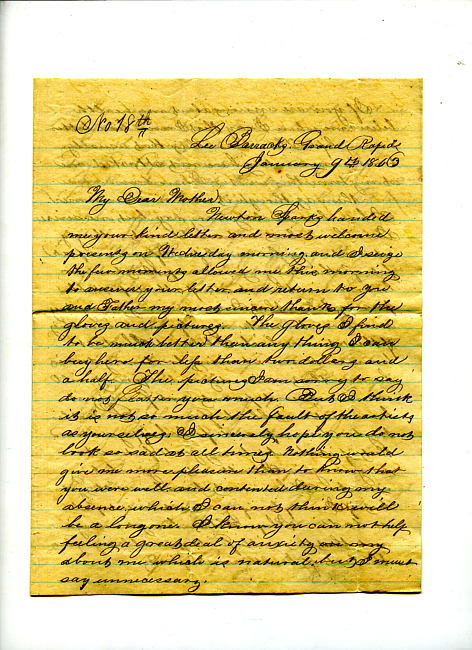 No 18th
Lee Barracks, Grand Rapids
January 9th 1863
My Dear Mother
Newton Sparks handed
me your kind letter and most welcome
presents on Wednesday morning and I seize
the few moments allowed me this morning
to answer your letter and return to you
and Father my most sincere thanks for the
gloves and pictures. The gloves I find
to be much better than any thing I can
buy here for less than two dollars and
a half. The pictures I am sorry to say
do not flatter you much. But I think
it is not so much the fault of the artists
as yourselves. I sincerely hope you do not
look so sad at all times. Nothing would
give me more pleasure than to know that
you were well and contented during my
absence which I can not think will
be a long one. I know you can not help
feeling a great deal of anxiety on my
about me which is natural but I must
say unnecessary.